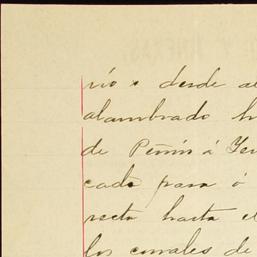 río o desde al
alambrado h
de Penin á Ten
cado para ó
recta hasta el
los corrales de